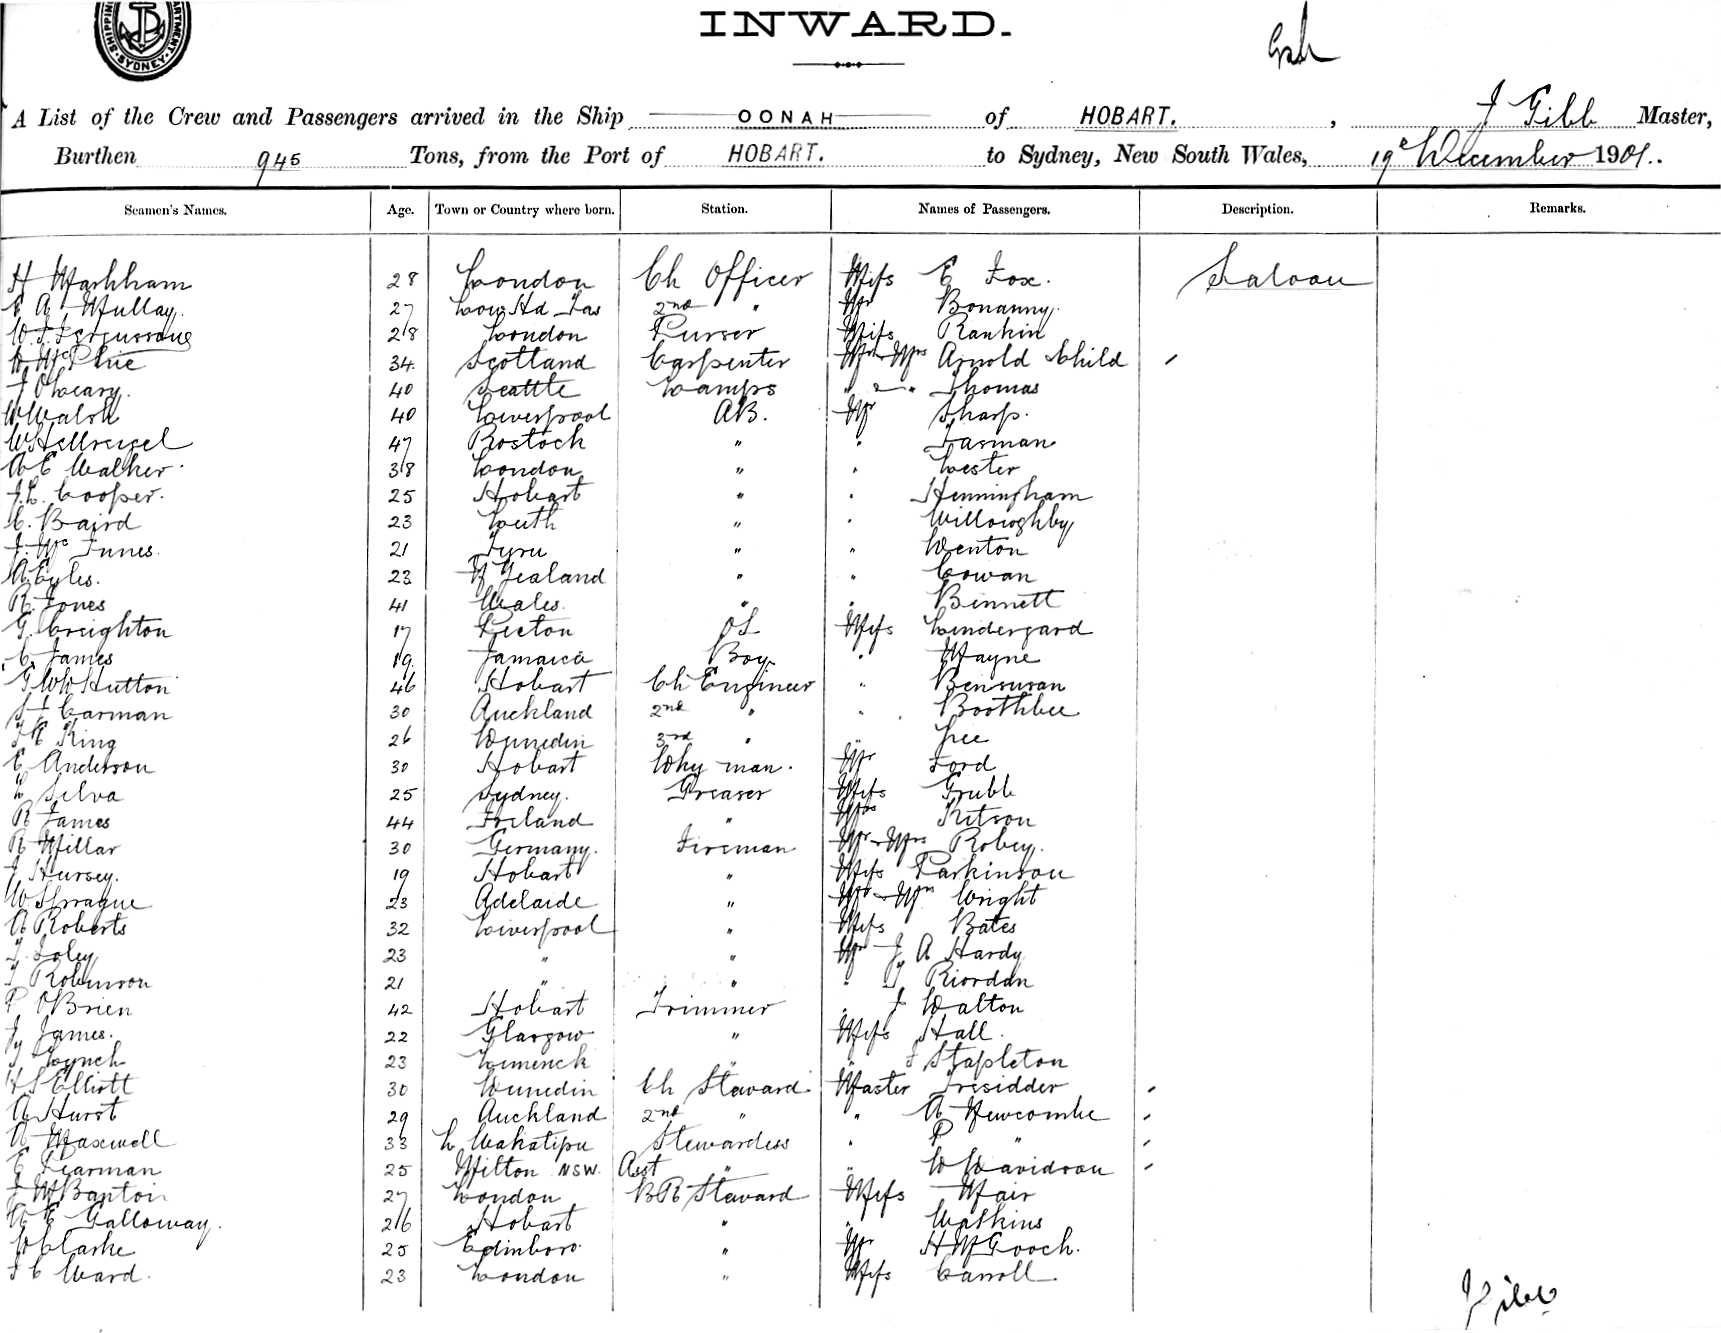 SHIPPING DEPARTMENT. SYDNEY.
INWARD.
A List of the Crew and Passengers arrived in the Ship OONAH of HOBART. , J Gibb Master,
Burthen 945 Tons, from the Port of HOBART. to Sydney, New South Wales, 19th December 1901.
Seamen's Names. Age. Town or Country where born. Station. Names of Passengers. Description. Remarks.
H Markham 28 London Ch Officer Miss E Fox. Saloon
E A Mullay. 27 Low Hd Tas 2nd " Mr Bonanny.
W.J. Fergussone 28 London Purser Miss Rankin
A McPhie 34 Scotland Carpenter Mr & Mrs Arnold Child
J O'Leary. 40 Seattle Lamps " " Thomas
W Walsh 40 Liverpool AB. Mr Sharp.
47 Rostock " " Tasman
A E Walker 38 London " " Lester
J.L. Cooper. 25 Hobart " " Henningham
C. Baird 23 Louth " " Willoughby
J. McInnes. 21 " " Wenton
A Eyles. 23 N Zealand " " Cowan
R. Jones 41 Wales. " " Bennett
G. Creighton 17 Picton OS Miss Lindergard
C. James 19. Jamaica Boy. " Mayne
G W W Hutton 46 Hobart Ch Engineer " Bensusan
Carman 30 Auckland 2nd " " Boothbee
King 26 Dunedin 3rd " " Lee
E Anderson 30 Hobart Dky man. Mr Ford
L Silva 25 Sydney. Greaser Miss Grubb
R James 44 Ireland " Mrs Kitson
R Millar 30 Germany. Fireman Mr & Mrs Robey.
J Hursey. 19 Hobart " Miss Parkinson
W Sprague 23 Adelaide " Mr & Mrs Wright
A Roberts 32 Liverpool " Miss Bates
J. Foley 23 " " Mr J A Hardy
J Robinson 21 " " " J Riordan
P O'Brien 42 Hobart Trimmer " J Walton
J James. 22 Glasgow " Miss Hall.
J Lynch 23 Limerick " " J Stapleton
H S Elliott 30 Dunedin Ch Steward Master Tresidder
A Hurst 29 Auckland 2nd " " A Newcombe
A Maxwell 33 L Wakatipu Stewardess " P "
E Pearman 25 Milton NSW. Asst " " W Davidson
27 London B R Steward Miss Mair
A E Galloway. 26 Hobart " " Watkins
W Clarke 25 Edinboro " Mr H M Gooch.
J C Ward. 23 London " Miss Carroll
J Gibb